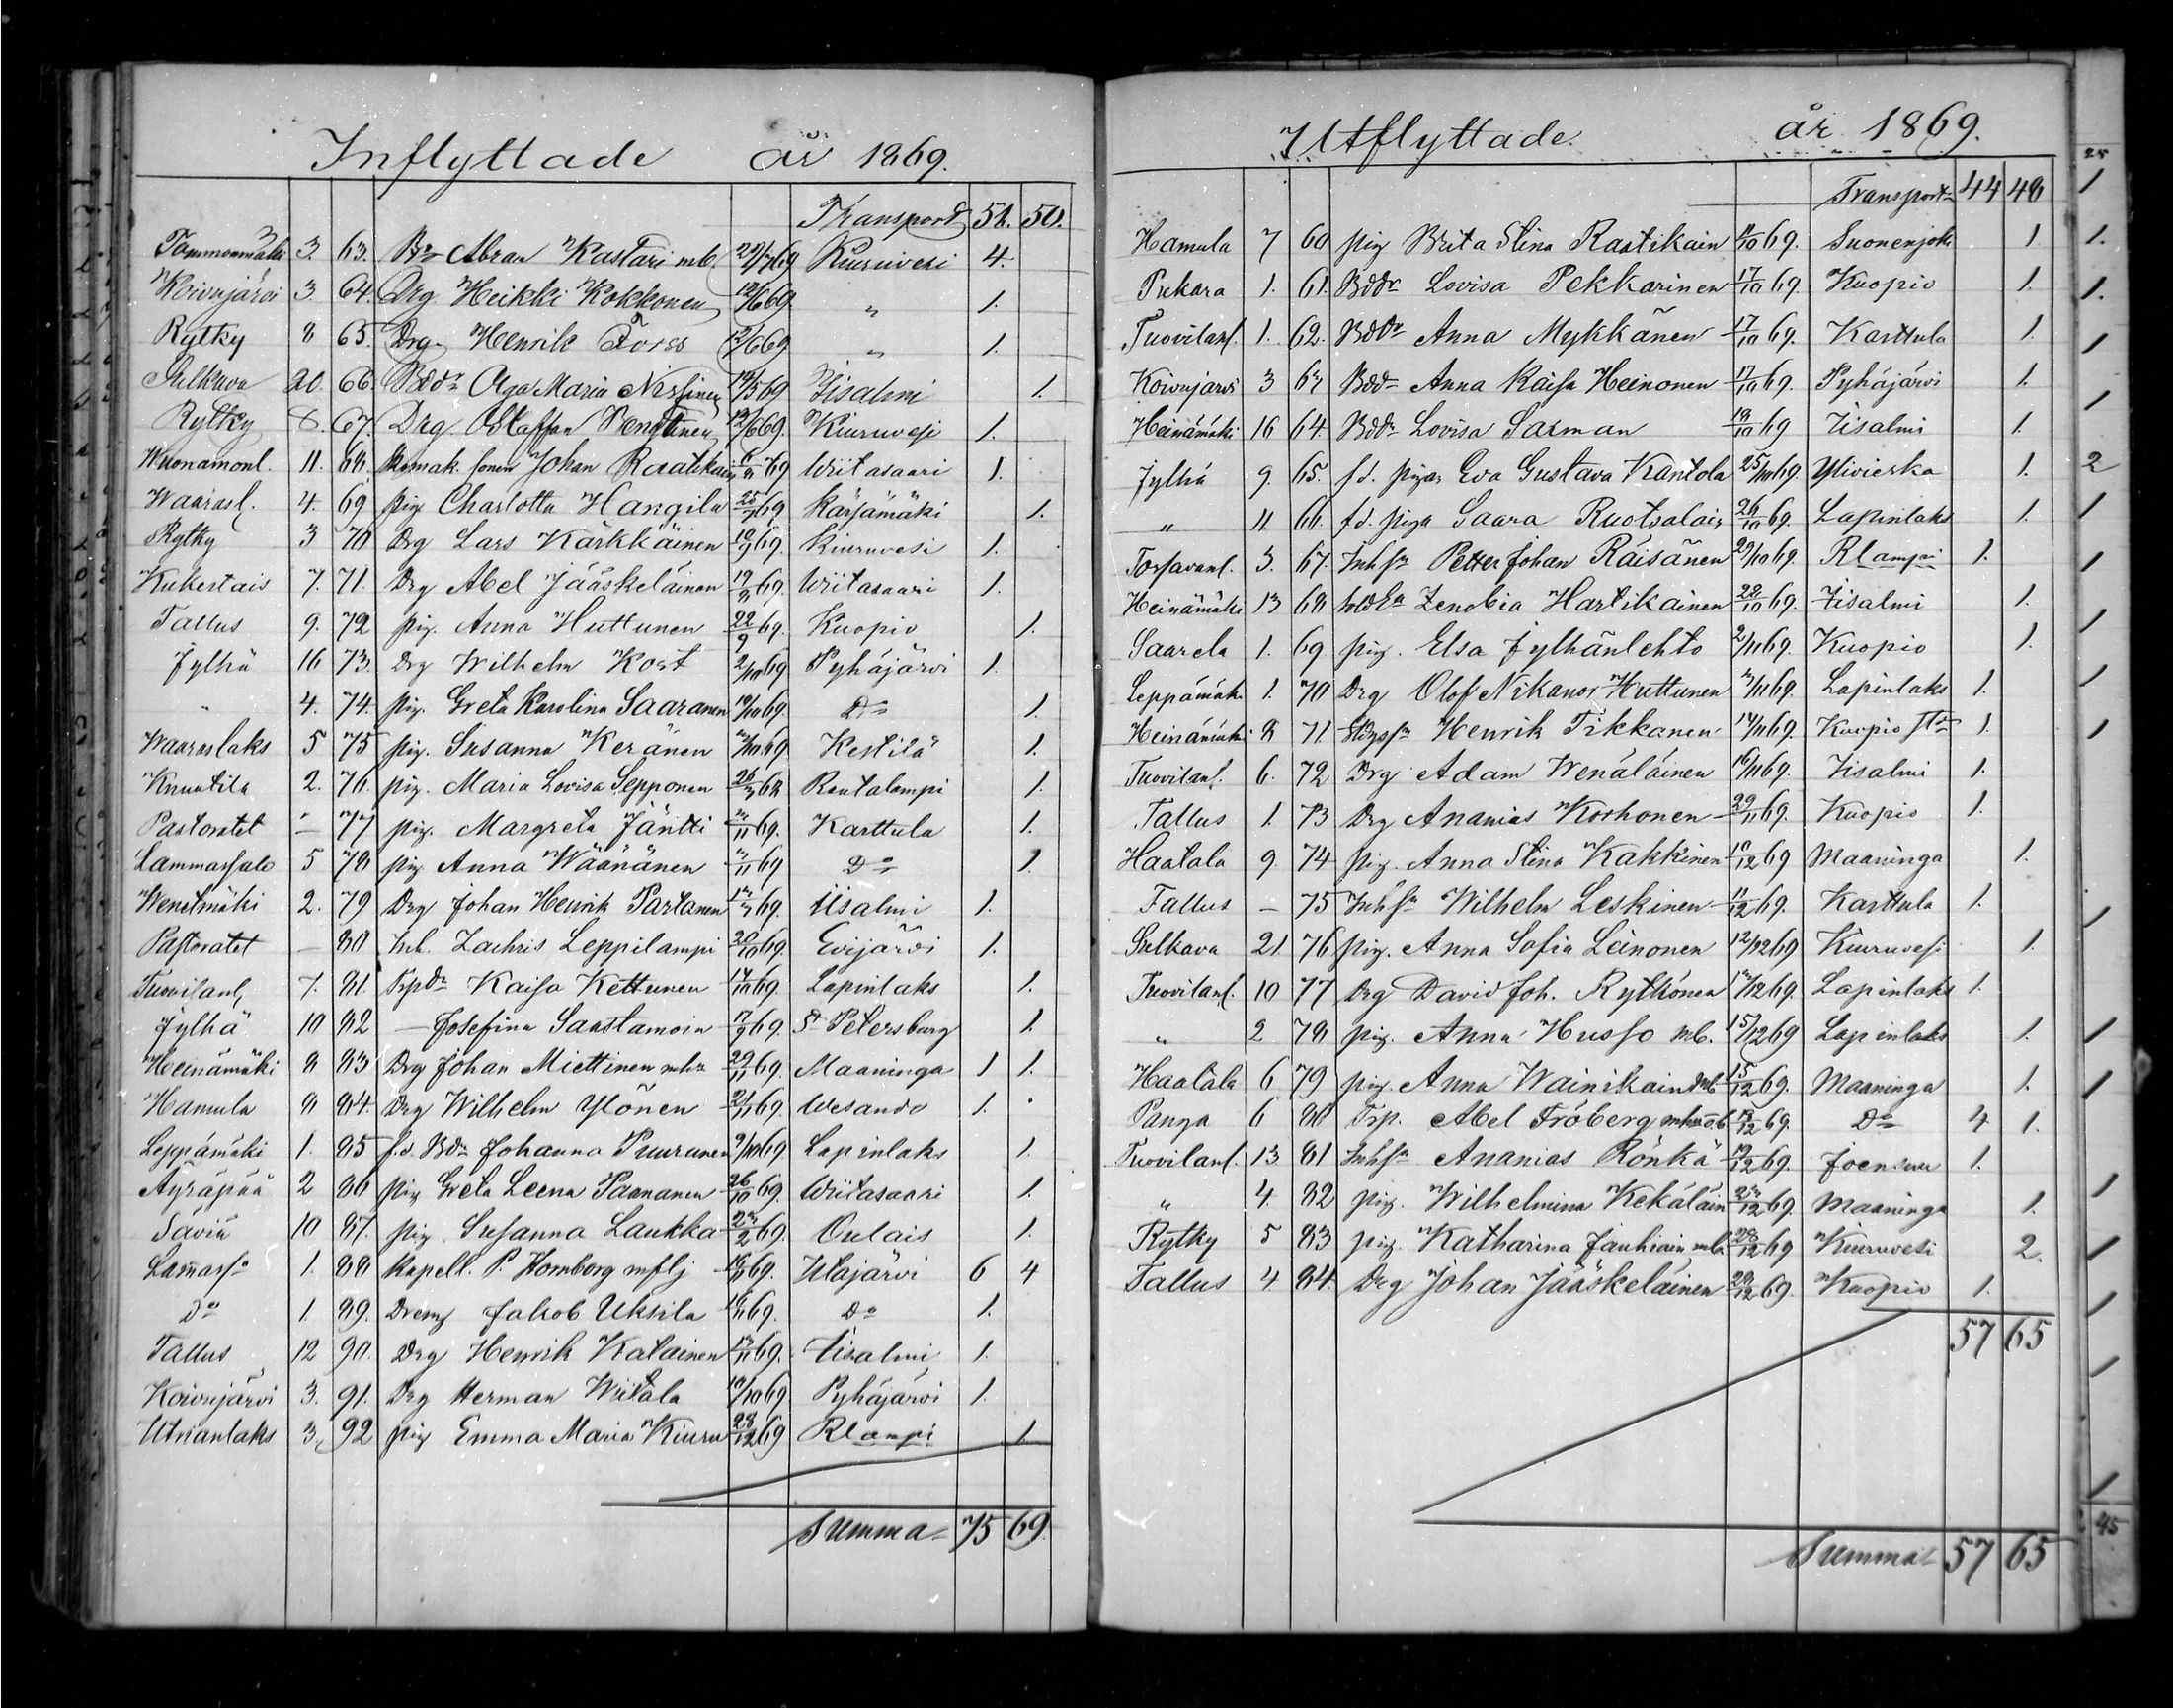 Inflyttade år 1869.
Transport 51. 50.
Tommonmäki 3. 63. Bd Abran Kastari mb. 22/7 69 Kiuruvesi 4.
Koivujärvi 3 64. Drg Heikki Kokkonen 12/6 69 " 1.
Rytky 8 65. Drg Henrik Forss 12/6 69 " 1.
Sulkava 20. 66. Bddr Aga Maria Nissinen 19/5 69 Iisalmi 1.
Rytky 8. 67. Drg Staffan Penttinen 12/6 69. Kiuruvesi 1.
Wuonamonl. 11. 68. Johan Raatikain 69 Wiitasaari 1.
Waarasl. 4. 69 pig Charlotta Hangila 25/7 69 Kärsämäki 1.
Rytky 3 70 Drg Lars Kärkkäinen 10/9 69. Kiuruvesi 1.
Kukertais 7. 71. Drg Abel Jääskeläinen 19/9 69. Wiitasaari 1.
Tallus 9. 72 pig. Anna Huttunen 22/9 69. Kuopio 1.
Jylhä 16 73. Drg Wilhelm Kort 2/10 69 Pyhäjärvi 1.
" 4. 74. pig. Greta Karolina Saaranen 10/10 69. Do 1.
Waaraslaks 5 75 pig. Susanna Keränen 3/10 69. Kestilä 1.
Knuutila 2. 76. pig. Maria Lovisa Sepponen 26/3 68 Rautalampi 1.
Pastoratet – 77 pig. Margreta Jäntti 3/11 69. Karttula 1.
Lammassalo 5 78 pig Anna Wäänänen 3/11 69 Do 1.
Wenetmäki 2. 79 Drg Johan Henrik Partanen 13/3 69. Iisalmi 1.
Pastoratet – 80 Inh. Zachris Leppilampi 20/10 69. Evijärvi 1.
Tuovilanl. 7. 81. Trpdr Kaisa Kettunen 14/10 69. Lapinlaks 1.
Jylhä 10 82 – Josefina Saastamoin 17/9 69. St Petersburg 1.
Heinämäki 8 83 Drg Johan Miettinen mhu 29/11 69. Maaninga 1 1.
Hamula 8 84. Drg Wilhelm Ylönen 21/11 69. Wesando 1.
Leppämäki 1. 85 f.d. Bdr Johanna Puurunen 9/10 69 Lapinlaks 1.
Äyräpää 2 86 pig Greta Leena Paananen 26/10 69. Wiitasaari 1.
Säviä 10 87. pig. Susanna Laukka 23/2 69. Oulais 1.
Lamass 1. 88 Kapell. P. Homborg mflj 16/11 69. Utajärvi 6 4
Do 1. 89. Dreng Jakob Uksila 16/11 69. Do 1.
Tallus 12 90. Drg Henrik Katainen 13/11 69. Iisalmi 1.
Koivujärvi 3. 91. Drg Herman Wiitala 10/10 69. Pyhäjärvi 1.
Utrianlaks 3. 92 pig Emma Maria Kiuru 28/12 69 Rlampi 1
Summa 75 69.
Utflyttade år 1869.
Transport 44 48
Hamula 7 60 pig Brita Stina Raatikain 11/10 69. Suonenjoki 1
Pukara 1. 61. Bddr Lovisa Pekkarinen 17/10 69. Kuopio 1.
Tuovilanl. 1. 62. Bddr Anna Mykkänen 17/10 69. Karttula 1.
Koivujärvi 3 63 Bddr Anna Kaisa Heinonen 17/10 69. Pyhäjärvi 1.
Heinämäki 16 64. Bddr Lovisa Sarman 19/10 69 Iisalmi 1.
Jylhä 9. 65. f.d. pigan Eva Gustava Kantola 25/10 69. Ylivieska 1.
" 11 66. f.d. piga Saara Ruotsalain 26/10 69. Lapinlaks 1.
Torsavanl. 3. 67. Inhsn Petter Johan Räisänen 29/10 69. Rlampi 1.
Heinämäki 13 68 Zenobia Hartikainen 22/10 69. Iisalmi 1.
Saarela 1. 69 pig. Elsa Jylhänlehto 2/11 69. Kuopio 1.
Leppämäki 1. 70 Drg Olof Nikanor Huttunen 3/11 69. Lapinlaks 1.
Heinämäki 8 71. Henrik Tikkanen 14/11 69. Kuopio std 1.
Tuovilanl. 6. 72. Drg Adam Wenäläinen 16/11 69. Iisalmi 1.
Tallus 1. 73 Drg Ananias Korhonen 29/11 69. Kuopio 1.
Haatala 9. 74 pig. Anna Stina Kakkinen 10/12 69 Maaninga 1.
Tallus – 75 Inhsn Wilhelm Leskinen 11/12 69. Karttula 1.
Sulkava 21. 76 pig. Anna Sofia Leinonen 12/12 69 Kiuruvesi 1.
Tuovilanl. 10 77 Drg David Joh. Rythönen 13/12 69. Lapinlaks 1.
" 2 78 pig. Anna Husso mb. 15/12 69 Lapinlaks 1.
Haatala 6 79 pig. Anna Wainikain mb 15/12 69. Maaninga 1.
Panga 6 80 Trp. Abel Fröberg mhu o.b. 19/12 69. Do 4 1.
Tuovilanl. 13 81 Inhsn Ananias Rönkä 19/12 69. Joensuu 1.
" 4. 82 pig. Wilhelmina Kekäläin 23/12 69. Maaninga 1.
Rytky 5 83 pig. Katharina Jauhiain mb. 28/12 69 Kiuruvesi 2.
Tallus 4. 84. Drg Johan Jääskeläinen 29/12 69. Kuopio 1.
57 65
Summa 57 65
25
2
45